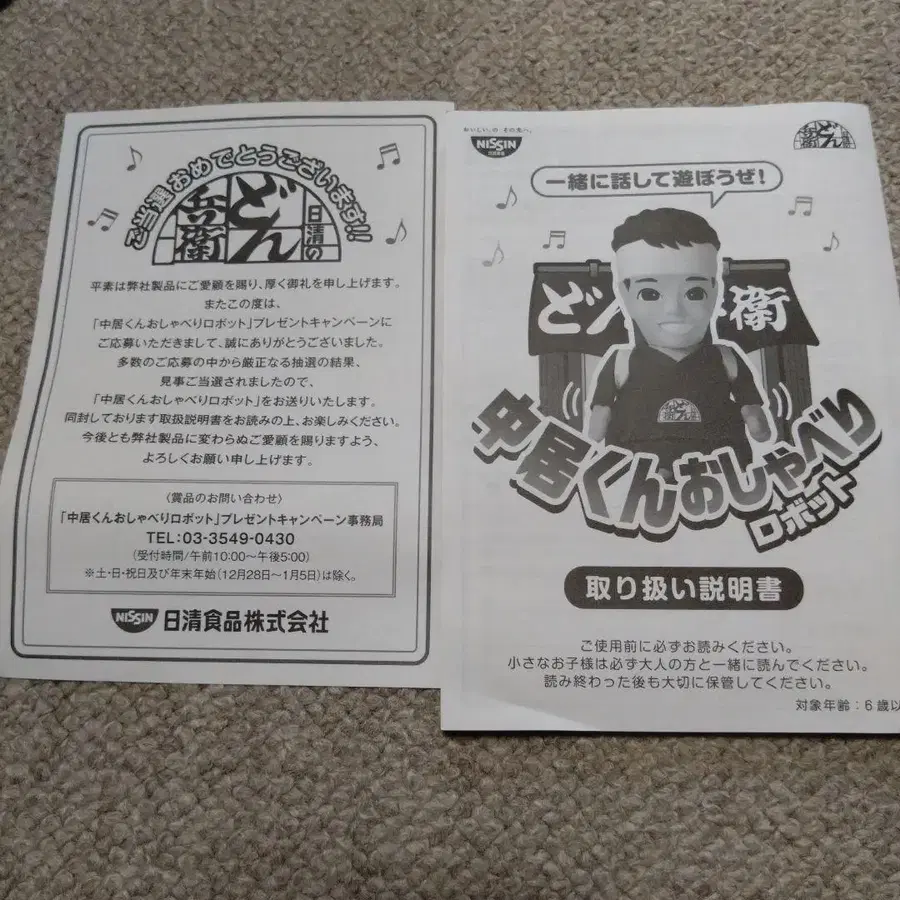 ご当選おめでとうございます!!
日清の
どん
兵衛
平素は弊社製品にご愛顧を賜り、厚く御礼を申し上げます。
またこの度は、
「中居くんおしゃべりロボット」プレゼントキャンペーンに
ご応募いただきまして、誠にありがとうございました。
多数のご応募の中から厳正なる抽選の結果、
見事ご当選されましたので、
「中居くんおしゃべりロボット」をお送りいたします。
同封しております取扱説明書をお読みの上、お楽しみください。
今後とも弊社製品に変わらぬご愛顧を賜りますよう、
よろしくお願い申し上げます。
〈賞品のお問い合わせ〉
「中居くんおしゃべりロボット」プレゼントキャンペーン事務局
TEL:03-3549-0430
(受付時間/午前10:00〜午後5:00)
※土・日・祝日及び年末年始(12月28日〜1月5日)は除く。
NISSIN 日清食品株式会社
おいしい、の その先へ。
NISSIN
日清食品
どん兵衛
一緒に話して遊ぼうぜ!
ど 衛
どん兵衛
中居くんおしゃべり
ロボット
取り扱い説明書
ご使用前に必ずお読みください。
小さなお子様は必ず大人の方と一緒に読んでください。
読み終わった後も大切に保管してください。
対象年齢:6歳以